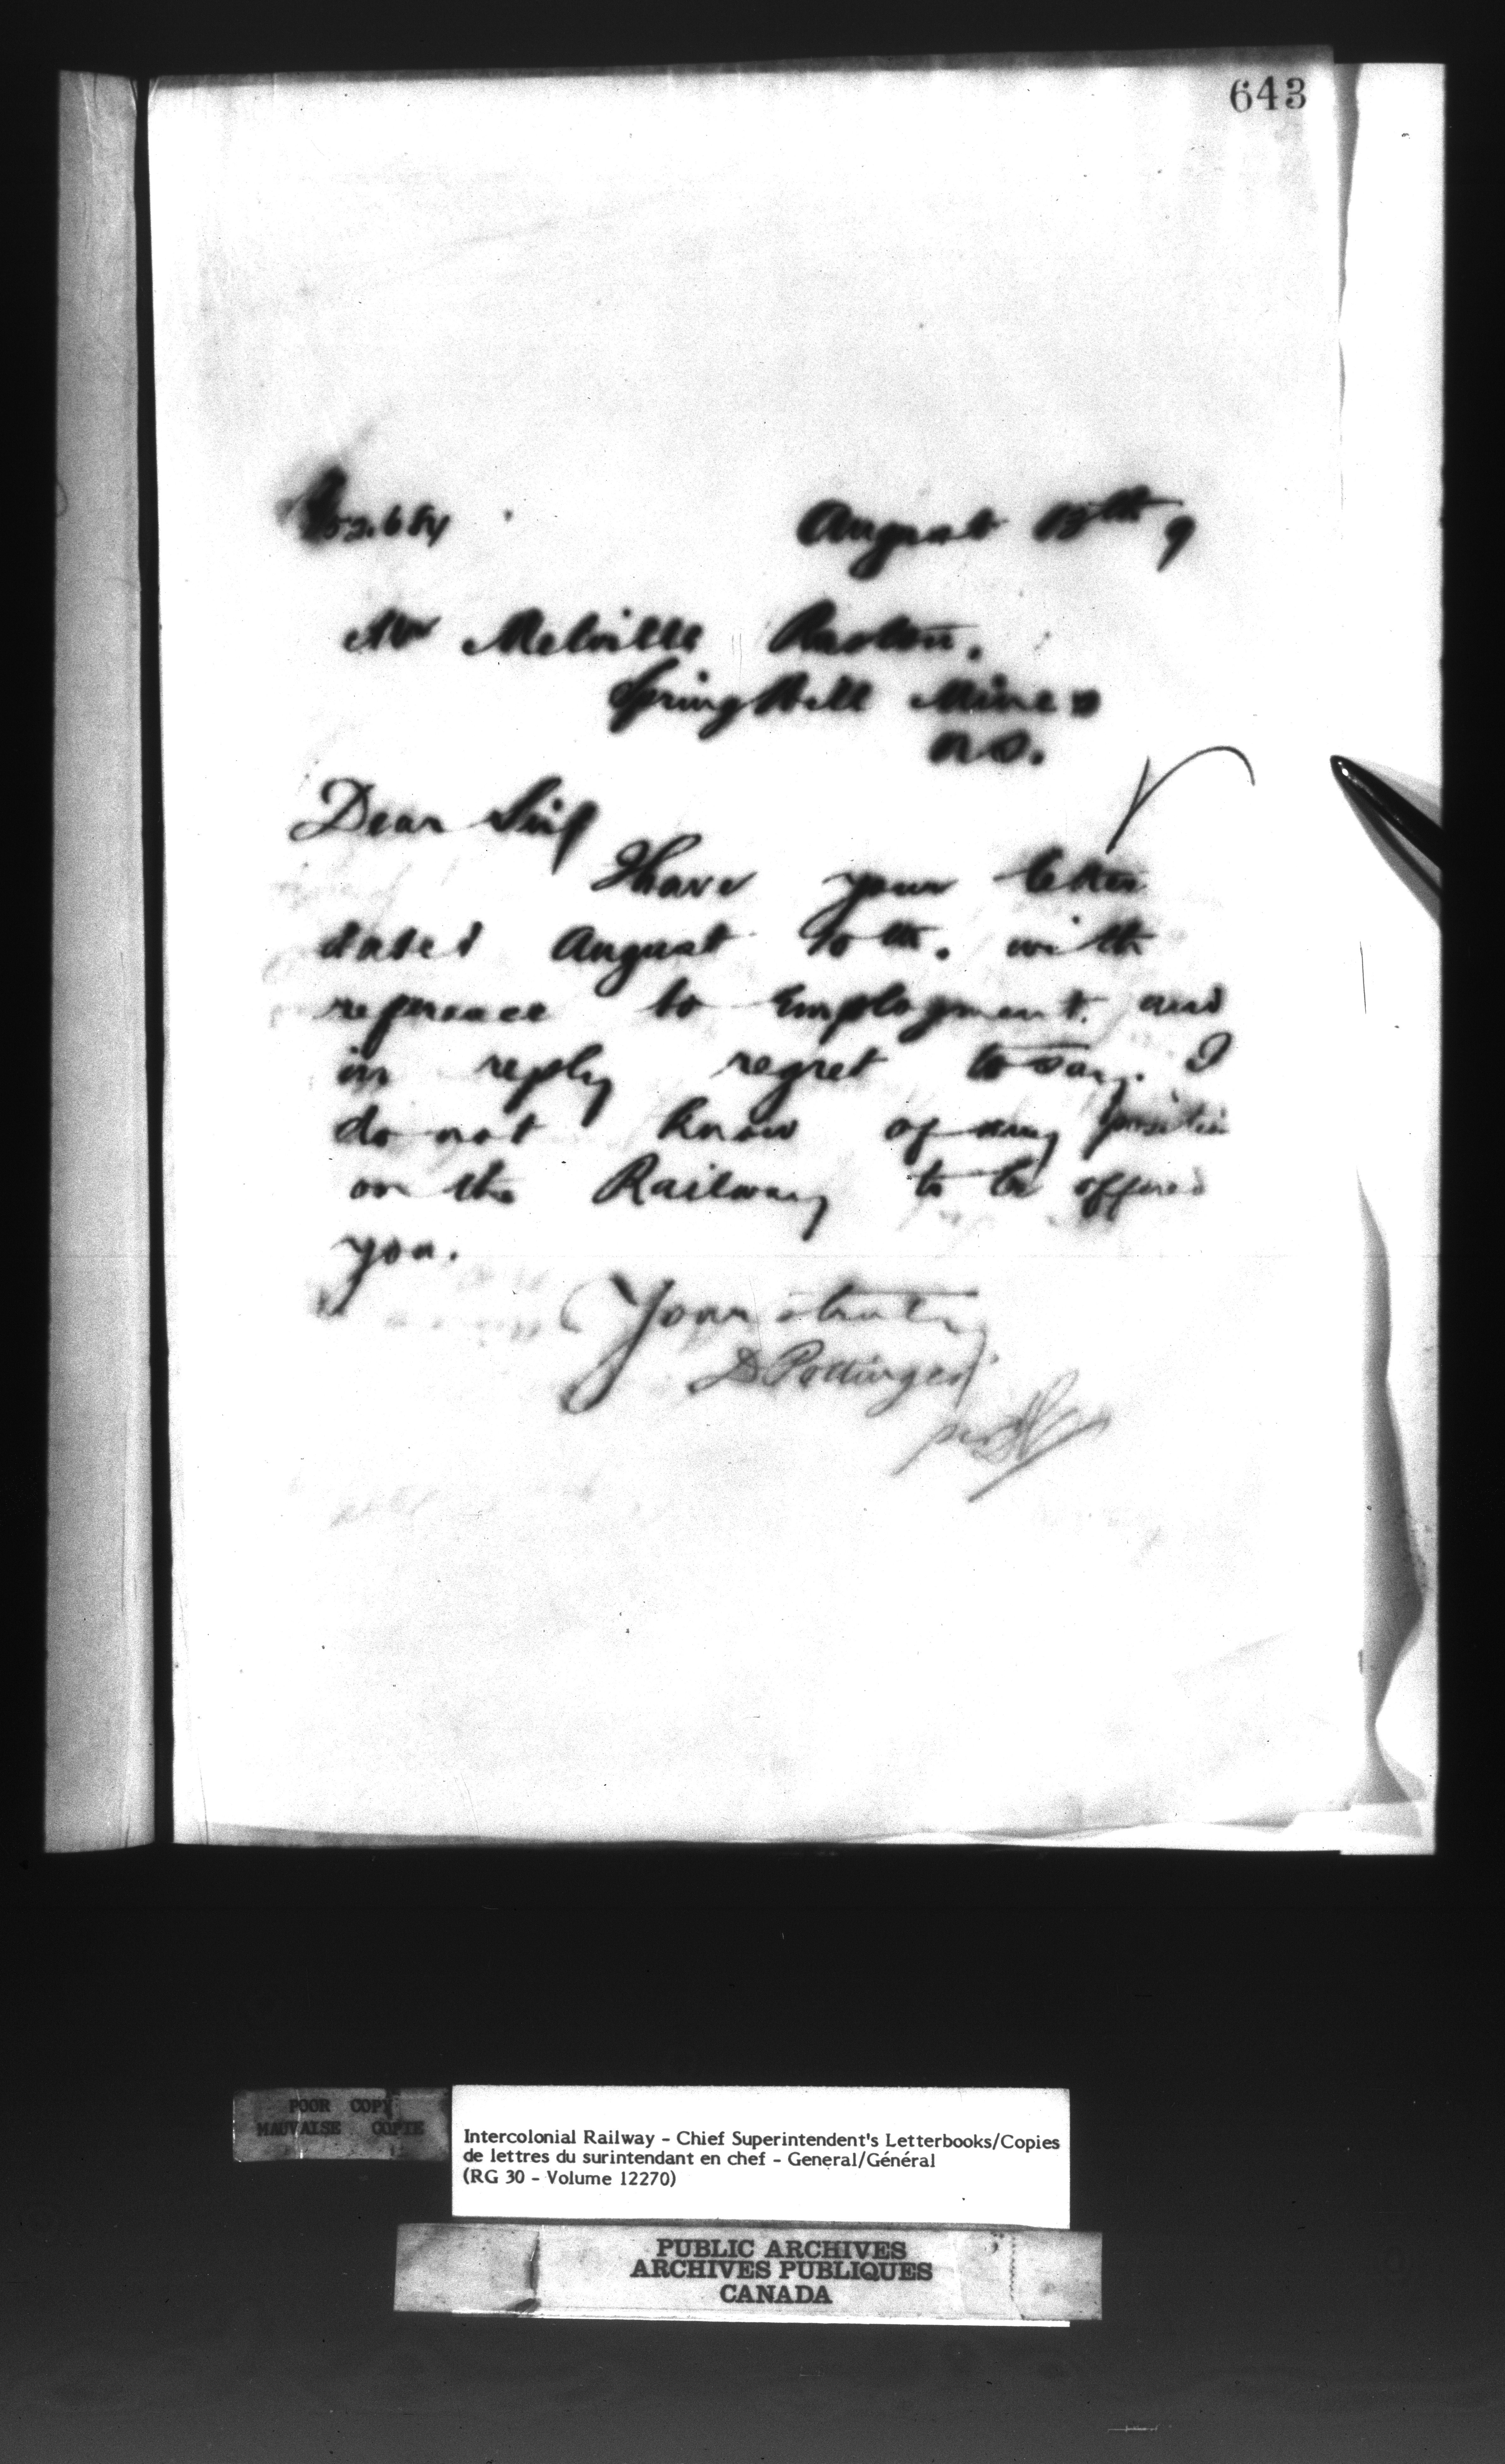 643
52.684
August 13th 9
Mr Melville
Spring Hill Mines
N.S.
Dear Sir
I have your letter
dated August 10th. with
reference to Employment. and
in reply regret to say. I
do not know of any position
on the Railway to be offered
you.
Yours truly
D Pottinger
per
POOR COPY
MAUVAISE COPIE
Intercolonial Railway - Chief Superintendent's Letterbooks/Copies
de lettres du surintendant en chef - General/Général
(RG 30 - Volume 12270)
PUBLIC ARCHIVES
ARCHIVES PUBLIQUES
CANADA